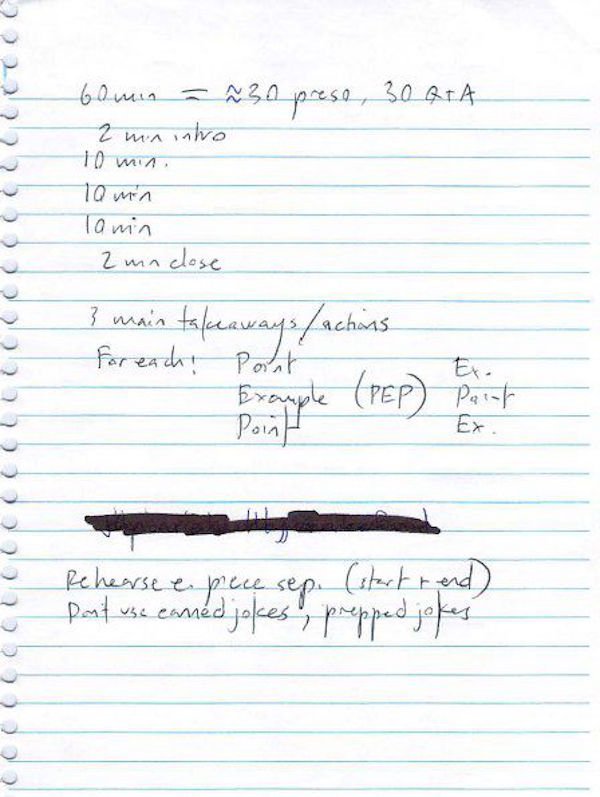 60 min = ≈30 preso, 30 Q+A
2 min intro
10 min.
10 min
10 min
2 min close
3 main takeaways/actions
For each: Point Ex.
Example (PEP) Point
Point Ex.
Rehearse e. piece sep. (start + end)
Don't use canned jokes, prepped jokes